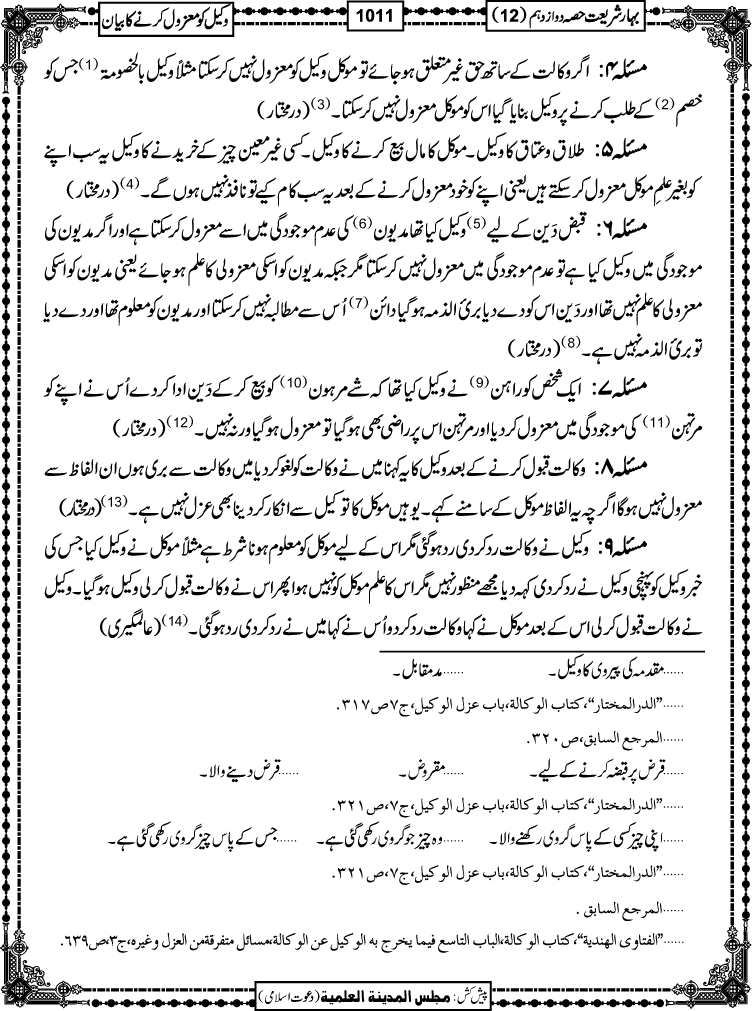 بہارِ شریعت حصہ دوازدہم (12)
1011
وکیل کو معزول کرنے کا بیان
مسئلہ ۴: اگر وکالت کے ساتھ حق غیر متعلق ہو جائے تو موکل وکیل کو معزول نہیں کر سکتا مثلاً وکیل بالخصومۃ (1) جس کو
خصم (2) کے طلب کرنے پر وکیل بنایا گیا اس کو موکل معزول نہیں کر سکتا۔ (3) (درمختار)
مسئلہ ۵: طلاق و عتاق کا وکیل۔ موکل کا مال بیع کرنے کا وکیل۔ کسی غیر معین چیز کے خریدنے کا وکیل یہ سب اپنے
کو بغیر علم موکل معزول کر سکتے ہیں یعنی اپنے کو خود معزول کرنے کے بعد یہ سب کام کیے تو نافذ نہیں ہوں گے۔ (4) (درمختار)
مسئلہ ۶: قبض دَین کے لیے (5) وکیل کیا تھا مدیون (6) کی عدم موجودگی میں اسے معزول کر سکتا ہے اور اگر مدیون کی
موجودگی میں وکیل کیا ہے تو عدم موجودگی میں معزول نہیں کر سکتا مگر جبکہ مدیون کو اسکی معزولی کا علم ہو جائے یعنی مدیون کو اسکی
معزولی کا علم نہیں تھا اور دَین اس کو دے دیا بریٔ الذمہ ہو گیا دائن (7) اُس سے مطالبہ نہیں کر سکتا اور مدیون کو معلوم تھا اور دے دیا
تو بریٔ الذمہ نہیں ہے۔ (8) (درمختار)
مسئلہ ۷: ایک شخص کو راہن (9) نے وکیل کیا تھا کہ شے مرہون (10) کو بیع کر کے دَین ادا کر دے اُس نے اپنے کو
مرتہن (11) کی موجودگی میں معزول کر دیا اور مرتہن اس پر راضی بھی ہو گیا تو معزول ہو گیا ورنہ نہیں۔ (12) (درمختار)
مسئلہ ۸: وکالت قبول کرنے کے بعد وکیل کا یہ کہنا میں نے وکالت کو لغو کر دیا میں وکالت سے بری ہوں ان الفاظ سے
معزول نہیں ہوگا اگرچہ یہ الفاظ موکل کے سامنے کہے۔ یوہیں موکل کا توکیل سے انکار کر دینا بھی عزل نہیں ہے۔ (13) (درمختار)
مسئلہ ۹: وکیل نے وکالت رد کر دی رد ہو گئی مگر اس کے لیے موکل کو معلوم ہونا شرط ہے مثلاً موکل نے وکیل کیا جس کی
خبر وکیل کو پہنچی وکیل نے رد کر دی کہہ دیا مجھے منظور نہیں مگر اس کا علم موکل کو نہیں ہوا پھر اس نے وکالت قبول کر لی وکیل ہو گیا۔ وکیل
نے وکالت قبول کر لی اس کے بعد موکل نے کہا وکالت رد کر دو اُس نے کہا میں نے رد کر دی رد ہو گئی۔ (14) (عالمگیری)
......مقدمہ کی پیروی کا وکیل۔ ......مدمقابل۔
......"الدرالمختار"،کتاب الوکالة،باب عزل الوکیل،ج۷ص۳۱۷.
......المرجع السابق،ص۳۲۰.
......قرض پر قبضہ کرنے کے لیے۔ ......مقروض۔ ......قرض دینے والا۔
......"الدرالمختار"،کتاب الوکالة،باب عزل الوکیل،ج۷،ص۳۲۱.
......اپنی چیز کسی کے پاس گروی رکھنے والا۔ ......وہ چیز جو گروی رکھی گئی ہے۔ ......جس کے پاس چیز گروی رکھی گئی ہے۔
......"الدرالمختار"،کتاب الوکالة،باب عزل الوکیل،ج۷،ص۳۲۱.
......المرجع السابق .
......"الفتاوی الهندیة"،کتاب الوکالة،الباب التاسع فیما یخرج به الوکیل عن الوکالة،مسائل متفرقة من العزل وغیره،ج۳،ص۶۳۹.
پیش کش: مجلس المدینة العلمیة (دعوت اسلامی)